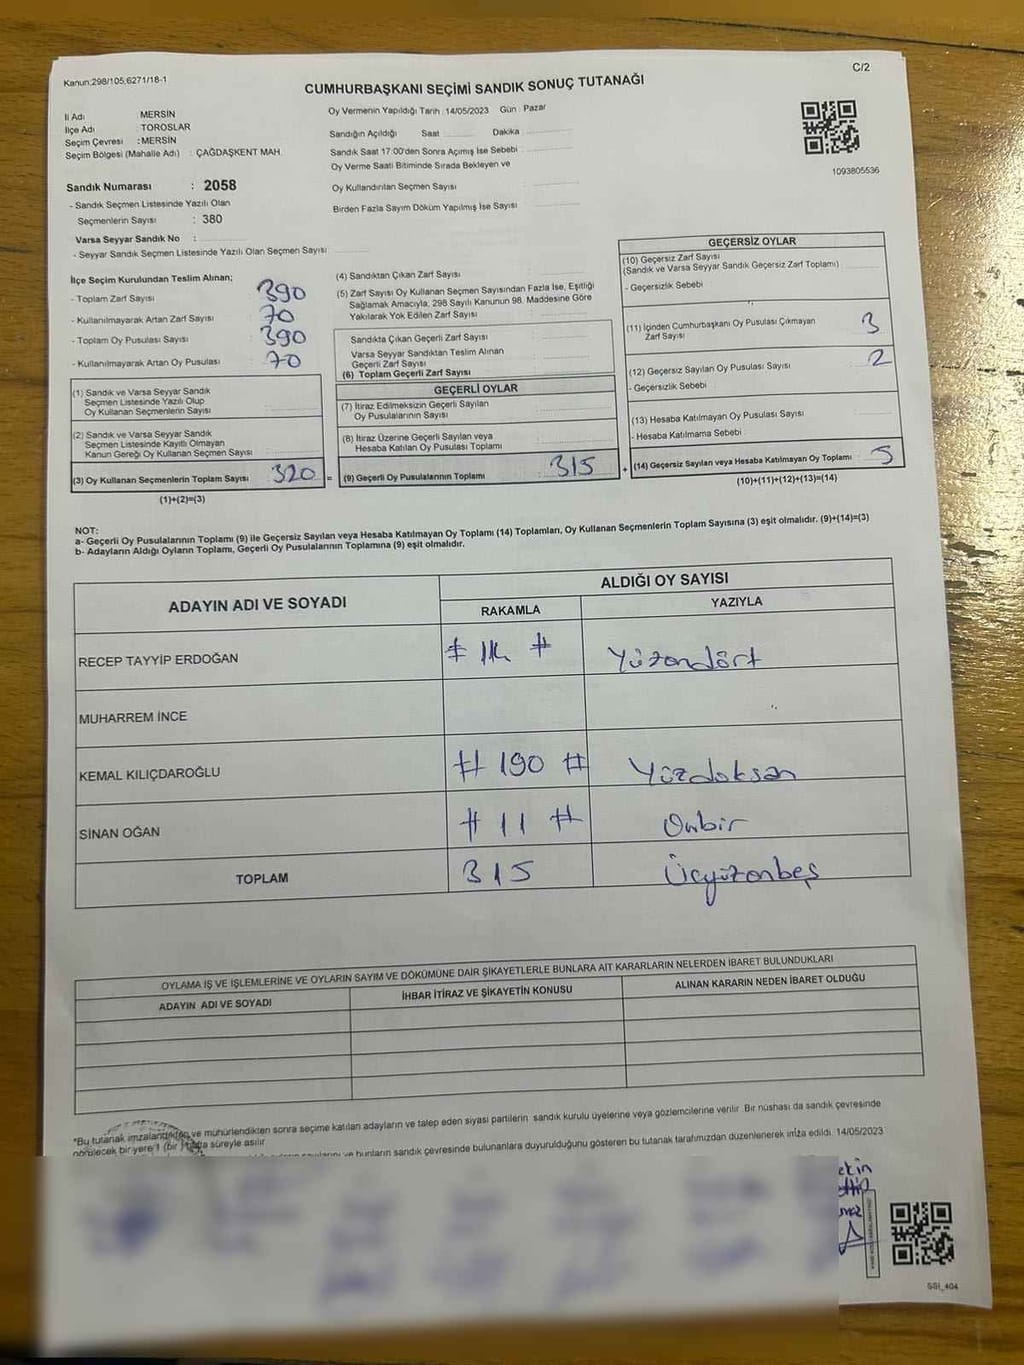 Kanun:298/105,6271/18-1
C/2
CUMHURBAŞKANI SEÇİMİ SANDIK SONUÇ TUTANAĞI
İl Adı MERSİN
İlçe Adı : TOROSLAR
Seçim Çevresi : MERSİN
Seçim Bölgesi (Mahalle Adı) : ÇAĞDAŞKENT MAH.
Oy Vermenin Yapıldığı Tarih : 14/05/2023 Gün : Pazar
Sandığın Açıldığı Saat Dakika
Sandık Saat 17:00'den Sonra Açımış İse Sebebi
Oy Verme Saati Bitiminde Sırada Bekleyen ve
Oy Kullandırılan Seçmen Sayısı
Birden Fazla Sayım Döküm Yapılmış İse Sayısı
1093805536
Sandık Numarası : 2058
- Sandık Seçmen Listesinde Yazılı Olan
Seçmenlerin Sayısı : 380
Varsa Seyyar Sandık No :
- Seyyar Sandık Seçmen Listesinde Yazılı Olan Seçmen Sayısı
İlçe Seçim Kurulundan Teslim Alınan;
- Toplam Zarf Sayısı 390
- Kullanılmayarak Artan Zarf Sayısı 70
- Toplam Oy Pusulası Sayısı 390
- Kullanılmayarak Artan Oy Pusulası 70
(1) Sandık ve Varsa Seyyar Sandık
Seçmen Listesinde Yazılı Olup
Oy Kullanan Seçmenlerin Sayısı
(2) Sandık ve Varsa Seyyar Sandık
Seçmen Listesinde Kayıtlı Olmayan
Kanun Gereği Oy Kullanan Seçmen Sayısı
(3) Oy Kullanan Seçmenlerin Toplam Sayısı 320
(1)+(2)=(3)
=
(4) Sandıktan Çıkan Zarf Sayısı
(5) Zarf Sayısı Oy Kullanan Seçmen Sayısından Fazla İse, Eşitliği
Sağlamak Amacıyla, 298 Sayılı Kanunun 98. Maddesine Göre
Yakılarak Yok Edilen Zarf Sayısı
Sandıkta Çıkan Geçerli Zarf Sayısı
Varsa Seyyar Sandıktan Teslim Alınan
Geçerli Zarf Sayısı
(6) Toplam Geçerli Zarf Sayısı
GEÇERLİ OYLAR
(7) İtiraz Edilmeksizin Geçerli Sayılan
Oy Pusulalarının Sayısı
(8) İtiraz Üzerine Geçerli Sayılan veya
Hesaba Katılan Oy Pusulası Toplamı
(9) Geçerli Oy Pusulalarının Toplamı 315
+
GEÇERSİZ OYLAR
(10) Geçersiz Zarf Sayısı
(Sandık ve Varsa Seyyar Sandık Geçersiz Zarf Toplamı)
- Geçersizlik Sebebi
(11) İçinden Cumhurbaşkanı Oy Pusulası Çıkmayan
Zarf Sayısı 3
(12) Geçersiz Sayılan Oy Pusulası Sayısı 2
- Geçersizlik Sebebi
(13) Hesaba Katılmayan Oy Pusulası Sayısı
- Hesaba Katılmama Sebebi
(14) Geçersiz Sayılan veya Hesaba Katılmayan Oy Toplamı 5
(10)+(11)+(12)+(13)=(14)
NOT:
a- Geçerli Oy Pusulalarının Toplamı (9) ile Geçersiz Sayılan veya Hesaba Katılmayan Oy Toplamı (14) Toplamları, Oy Kullanan Seçmenlerin Toplam Sayısına (3) eşit olmalıdır. (9)+(14)=(3)
b- Adayların Aldığı Oyların Toplamı, Geçerli Oy Pusulalarının Toplamına (9) eşit olmalıdır.
ADAYIN ADI VE SOYADI ALDIĞI OY SAYISI
RAKAMLA YAZIYLA
RECEP TAYYİP ERDOĞAN # 114 # Yüzondört
MUHARREM İNCE
KEMAL KILIÇDAROĞLU # 190 # Yüzdoksan
SİNAN OĞAN # 11 # Onbir
TOPLAM 315 Üçyüzonbeş
OYLAMA İŞ VE İŞLEMLERİNE VE OYLARIN SAYIM VE DÖKÜMÜNE DAİR ŞİKAYETLERLE BUNLARA AİT KARARLARIN NELERDEN İBARET BULUNDUKLARI
ADAYIN ADI VE SOYADI İHBAR İTİRAZ VE ŞİKAYETİN KONUSU ALINAN KARARIN NEDEN İBARET OLDUĞU
*Bu tutanak imzalandıktan ve mühürlendikten sonra seçime katılan adayların ve talep eden siyasi partilerin sandık kurulu üyelerine veya gözlemcilerine verilir. Bir nüshası da sandık çevresinde
görülecek bir yere 1 (bir) hafta süreyle asılır
ve bunların sandık çevresinde bulunanlara duyurulduğunu gösteren bu tutanak tarafımızdan düzenlenerek imza edildi. 14/05/2023
SSI_404